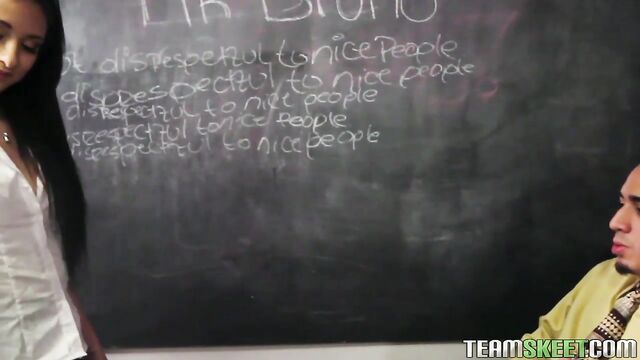 Mr Bruno
disrespectful to nice people
disrespectful to nice people
disrespectful to nice people
disrespectful to nice people
disrespectful to nice people
TEAMSKEET.COM